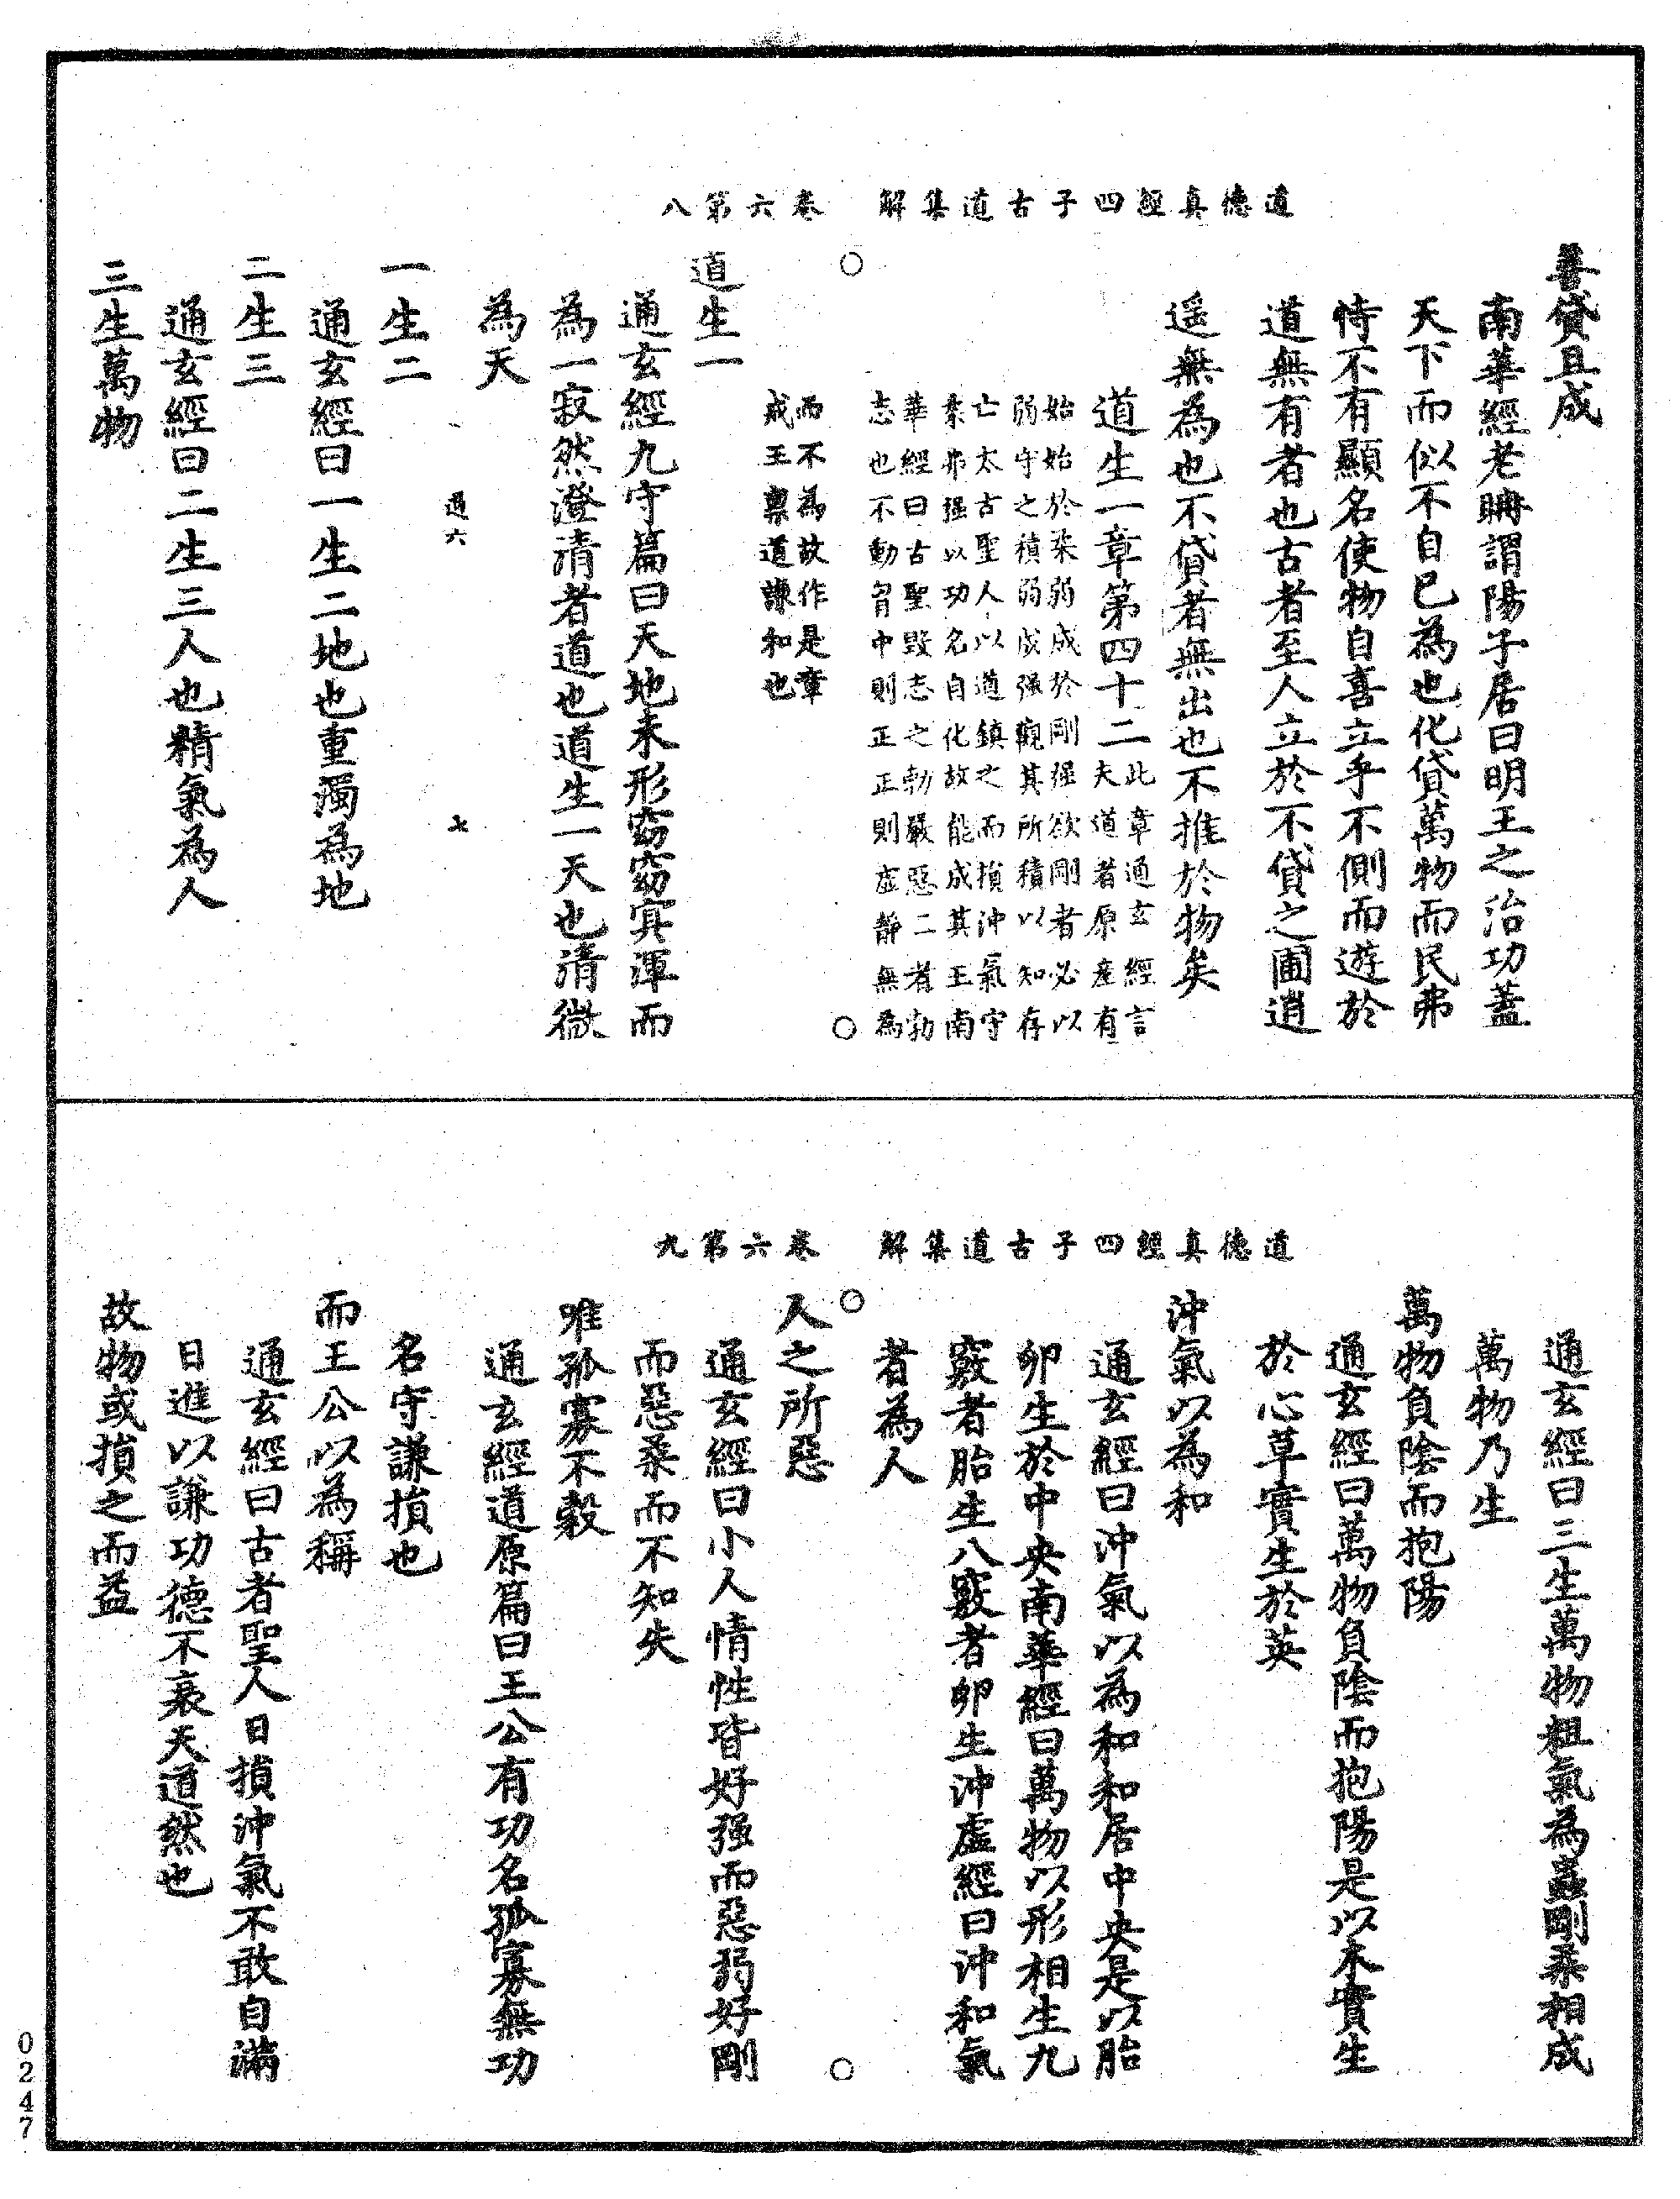 道德真經四子古道集解　卷六第八
善貸且成
南華經老聃謂陽子居曰明王之治功蓋
天下而似不自已為也化貸萬物而民弗
恃不有顯名使物自喜立乎不側而遊於
道無有者也古者至人立於不貸之圃逍
遥無為也不貸者無出也不推於物矣
道生一章第四十二此章通玄經言
夫道者原産有
始始於柔弱成於剛强欲剛者必以
弱守之積弱成强觀其所積以知存
亡太古聖人以道鎮之而損沖氣守
柔弗强以功名自化故能成其王南
華經曰古聖毀志之勃嚴惡二者勃
志也不動胷中則正正則虛静無為
而不為故作是章
戒王禀道謙和也
道生一
通玄經九守篇曰天地未形窈窈㝠渾而
為一寂然澄清者道也道生一天也清微
為天
通六
七
一生二
通玄經曰一生二地也重濁為地
二生三
通玄經曰二生三人也精氣為人
三生萬物
道德真經四子古道集解　卷六第九
通玄經曰三生萬物粗氣為蟲剛柔相成
萬物乃生
萬物負陰而抱陽
通玄經曰萬物負陰而抱陽是以木實生
於心草實生於英
沖氣以為和
通玄經曰沖氣以為和和居中央是以胎
卵生於中央南華經曰萬物以形相生九
竅者胎生八竅者卵生沖虛經曰沖和氣
者為人
人之所惡
通玄經曰小人情性皆好强而惡弱好剛
而惡柔而不知失
唯孤寡不穀
通玄經道原篇曰王公有功名孤寡無功
名守謙損也
而王公以為稱
通玄經曰古者聖人日損沖氣不敢自滿
日進以謙功德不衰天道然也
故物或損之而益
0247